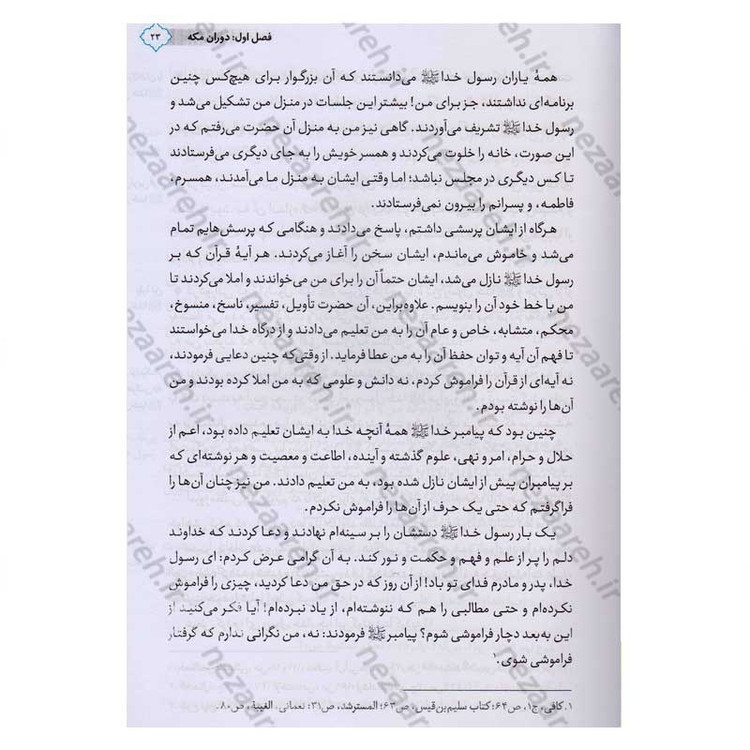 فصل اول: دوران مکه ۲۳
همهٔ یاران رسول خدا ﷺ می‌دانستند که آن بزرگوار برای هیچ‌کس چنین
برنامه‌ای نداشتند، جز برای من! بیشتر این جلسات در منزل من تشکیل می‌شد و
رسول خدا ﷺ تشریف می‌آوردند. گاهی نیز من به منزل آن حضرت می‌رفتم که در
این صورت، خانه را خلوت می‌کردند و همسر خویش را به جای دیگری می‌فرستادند
تا کس دیگری در مجلس نباشد؛ اما وقتی ایشان به منزل ما می‌آمدند، همسرم،
فاطمه، و پسرانم را بیرون نمی‌فرستادند.
هرگاه از ایشان پرسشی داشتم، پاسخ می‌دادند و هنگامی که پرسش‌هایم تمام
می‌شد و خاموش می‌ماندم، ایشان سخن را آغاز می‌کردند. هر آیهٔ قرآن که بر
رسول خدا ﷺ نازل می‌شد، ایشان حتماً آن را برای من می‌خواندند و املا می‌کردند تا
من با خط خود آن را بنویسم. علاوه‌براین، آن حضرت تأویل، تفسیر، ناسخ، منسوخ،
محکم، متشابه، خاص و عام آن را به من تعلیم می‌دادند و از درگاه خدا می‌خواستند
تا فهم آن آیه و توان حفظ آن را به من عطا فرماید. از وقتی‌که چنین دعایی فرمودند،
نه آیه‌ای از قرآن را فراموش کردم، نه دانش و علومی که به من املا کرده بودند و من
آن‌ها را نوشته بودم.
چنین بود که پیامبر خدا ﷺ همهٔ آنچه خدا به ایشان تعلیم داده بود، اعم از
حلال و حرام، امر و نهی، علوم گذشته و آینده، اطاعت و معصیت و هر نوشته‌ای که
بر پیامبران پیش از ایشان نازل شده بود، به من تعلیم دادند. من نیز چنان آن‌ها را
فراگرفتم که حتی یک حرف از آن‌ها را فراموش نکردم.
یک بار رسول خدا ﷺ دستشان را بر سینه‌ام نهادند و دعا کردند که خداوند
دلم را پر از علم و فهم و حکمت و نور کند. به آن گرامی عرض کردم: ای رسول
خدا، پدر و مادرم فدای تو باد! از آن روز که در حق من دعا کردید، چیزی را فراموش
نکرده‌ام و حتی مطالبی را هم که ننوشته‌ام، از یاد نبرده‌ام! آیا فکر می‌کنید از
این به‌بعد دچار فراموشی شوم؟ پیامبر ﷺ فرمودند: نه، من نگرانی ندارم که گرفتار
فراموشی شوی.۱
۱. کافی، ج۱، ص۶۴؛ کتاب سلیم‌بن‌قیس، ص۶۳؛ المسترشد، ص۳۱؛ نعمانی، الغیبة، ص۸۰.
nezaareh.ir